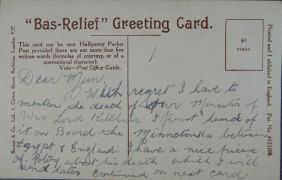 "Bas-Relief" Greeting Card.
This card can be sent Halfpenny Packet
Post provided there are not more than five
written words (formulas of courtesy, or of a
conventional character).
Vide—Post Office Guide.
½d.
STAMP.
Printed and Published in England.
1
Dear Mum,
With regret I have to
mention the death of our Minister of
War Lord Kitchener I first heard of
it on Board the Minnetonka between
Egypt & England. I have a nice piece
of Poetry about his death which I will
send later Continued on next card